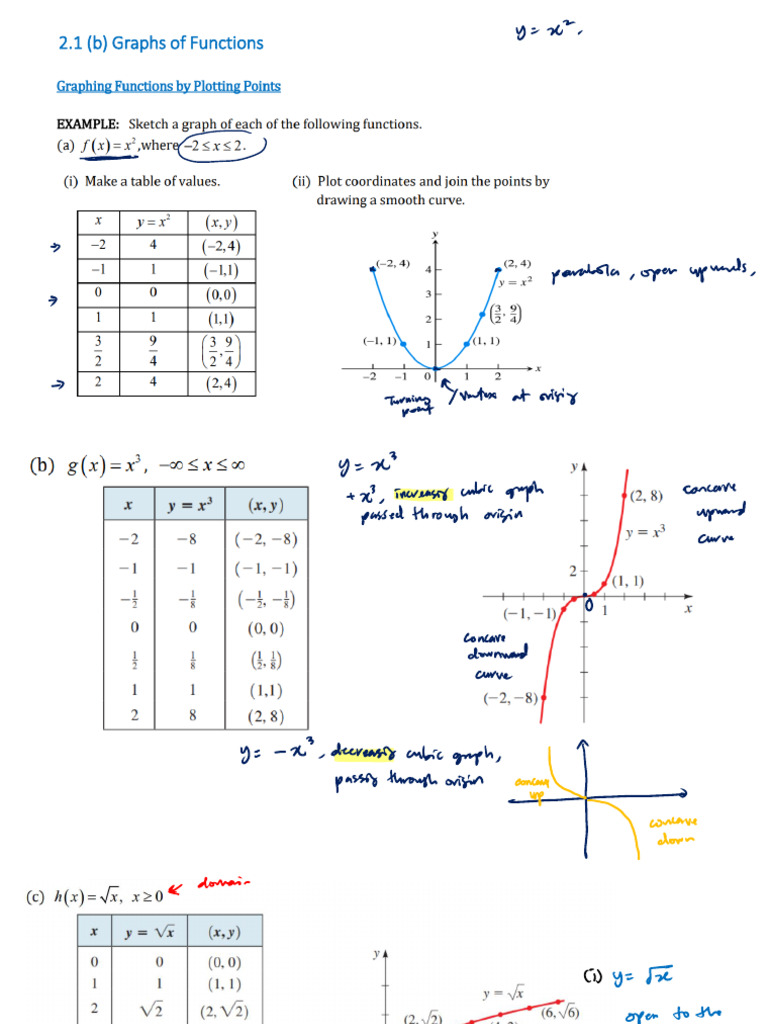 y = x²,
2.1 (b) Graphs of Functions
Graphing Functions by Plotting Points
EXAMPLE: Sketch a graph of each of the following functions.
(a) f(x) = x², where −2 ≤ x ≤ 2.
(i) Make a table of values.
(ii) Plot coordinates and join the points by
drawing a smooth curve.
x y = x² (x, y)
−2 4 (−2,4)
−1 1 (−1,1)
0 0 (0,0)
1 1 (1,1)
3/2 9/4 (3/2, 9/4)
2 4 (2,4)
y
(−2, 4) 4 (2, 4)
y = x²
3
(3/2, 9/4)
2
(−1, 1) 1 (1, 1)
−2 −1 0 1 2 x
parabola, open upwards,
Turning
point
Vertex at origin
(b) g(x) = x³, −∞ ≤ x ≤ ∞
x y = x³ (x, y)
−2 −8 (−2, −8)
−1 −1 (−1, −1)
−1/2 −1/8 (−1/2, −1/8)
0 0 (0, 0)
1/2 1/8 (1/2, 1/8)
1 1 (1,1)
2 8 (2, 8)
y = x³
+x³, increasing cubic graph
passed through origin
y
(2, 8)
y = x³
2
(1, 1)
0 1 x
(−1, −1)
(−2, −8)
concave
upward
curve
concave
downward
curve
y = −x³, decreasing cubic graph,
passing through origin
concave
up
concave
down
(c) h(x) = √x, x ≥ 0
domain
x y = √x (x, y)
0 0 (0, 0)
1 1 (1, 1)
2 √2 (2, √2)
y
y = √x
(6, √6)
(2, √2)
(i) y = √x
open to the